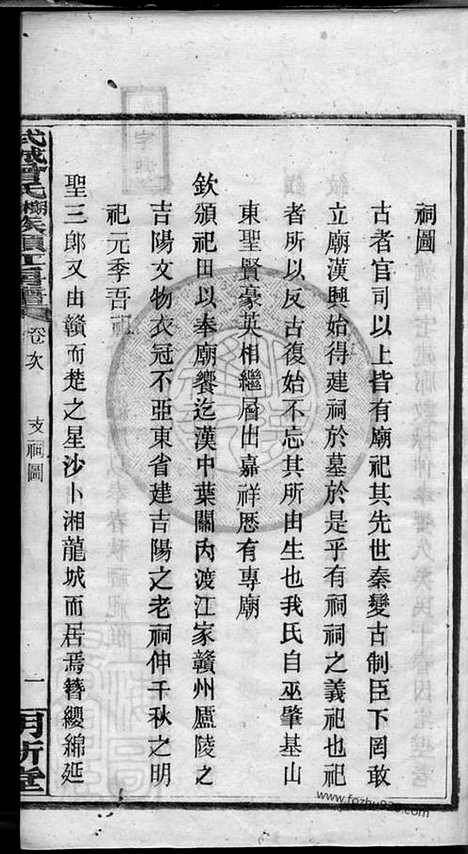 祠圖
古者官司以上皆有廟祀其先世秦變古制臣下罔敢
立廟漢興始得建祠於墓於是乎有祠祠之義祀也祀
者所以反古復始不忘其所由生也我氏自巫肇基山
東聖賢豪英相繼層出嘉祥歷有專廟
欽頒祀田以奉廟饗迄漢中葉關內渡江家贛州廬陵之
吉陽文物衣冠不亞東省建吉陽之老祠伸千秋之明
祀元季吾祀
聖三郎又由贛而楚之星沙卜湘龍城而居焉簪纓綿延
武城曾氏
卷次
支祠圖
一
www.fozhu920.com